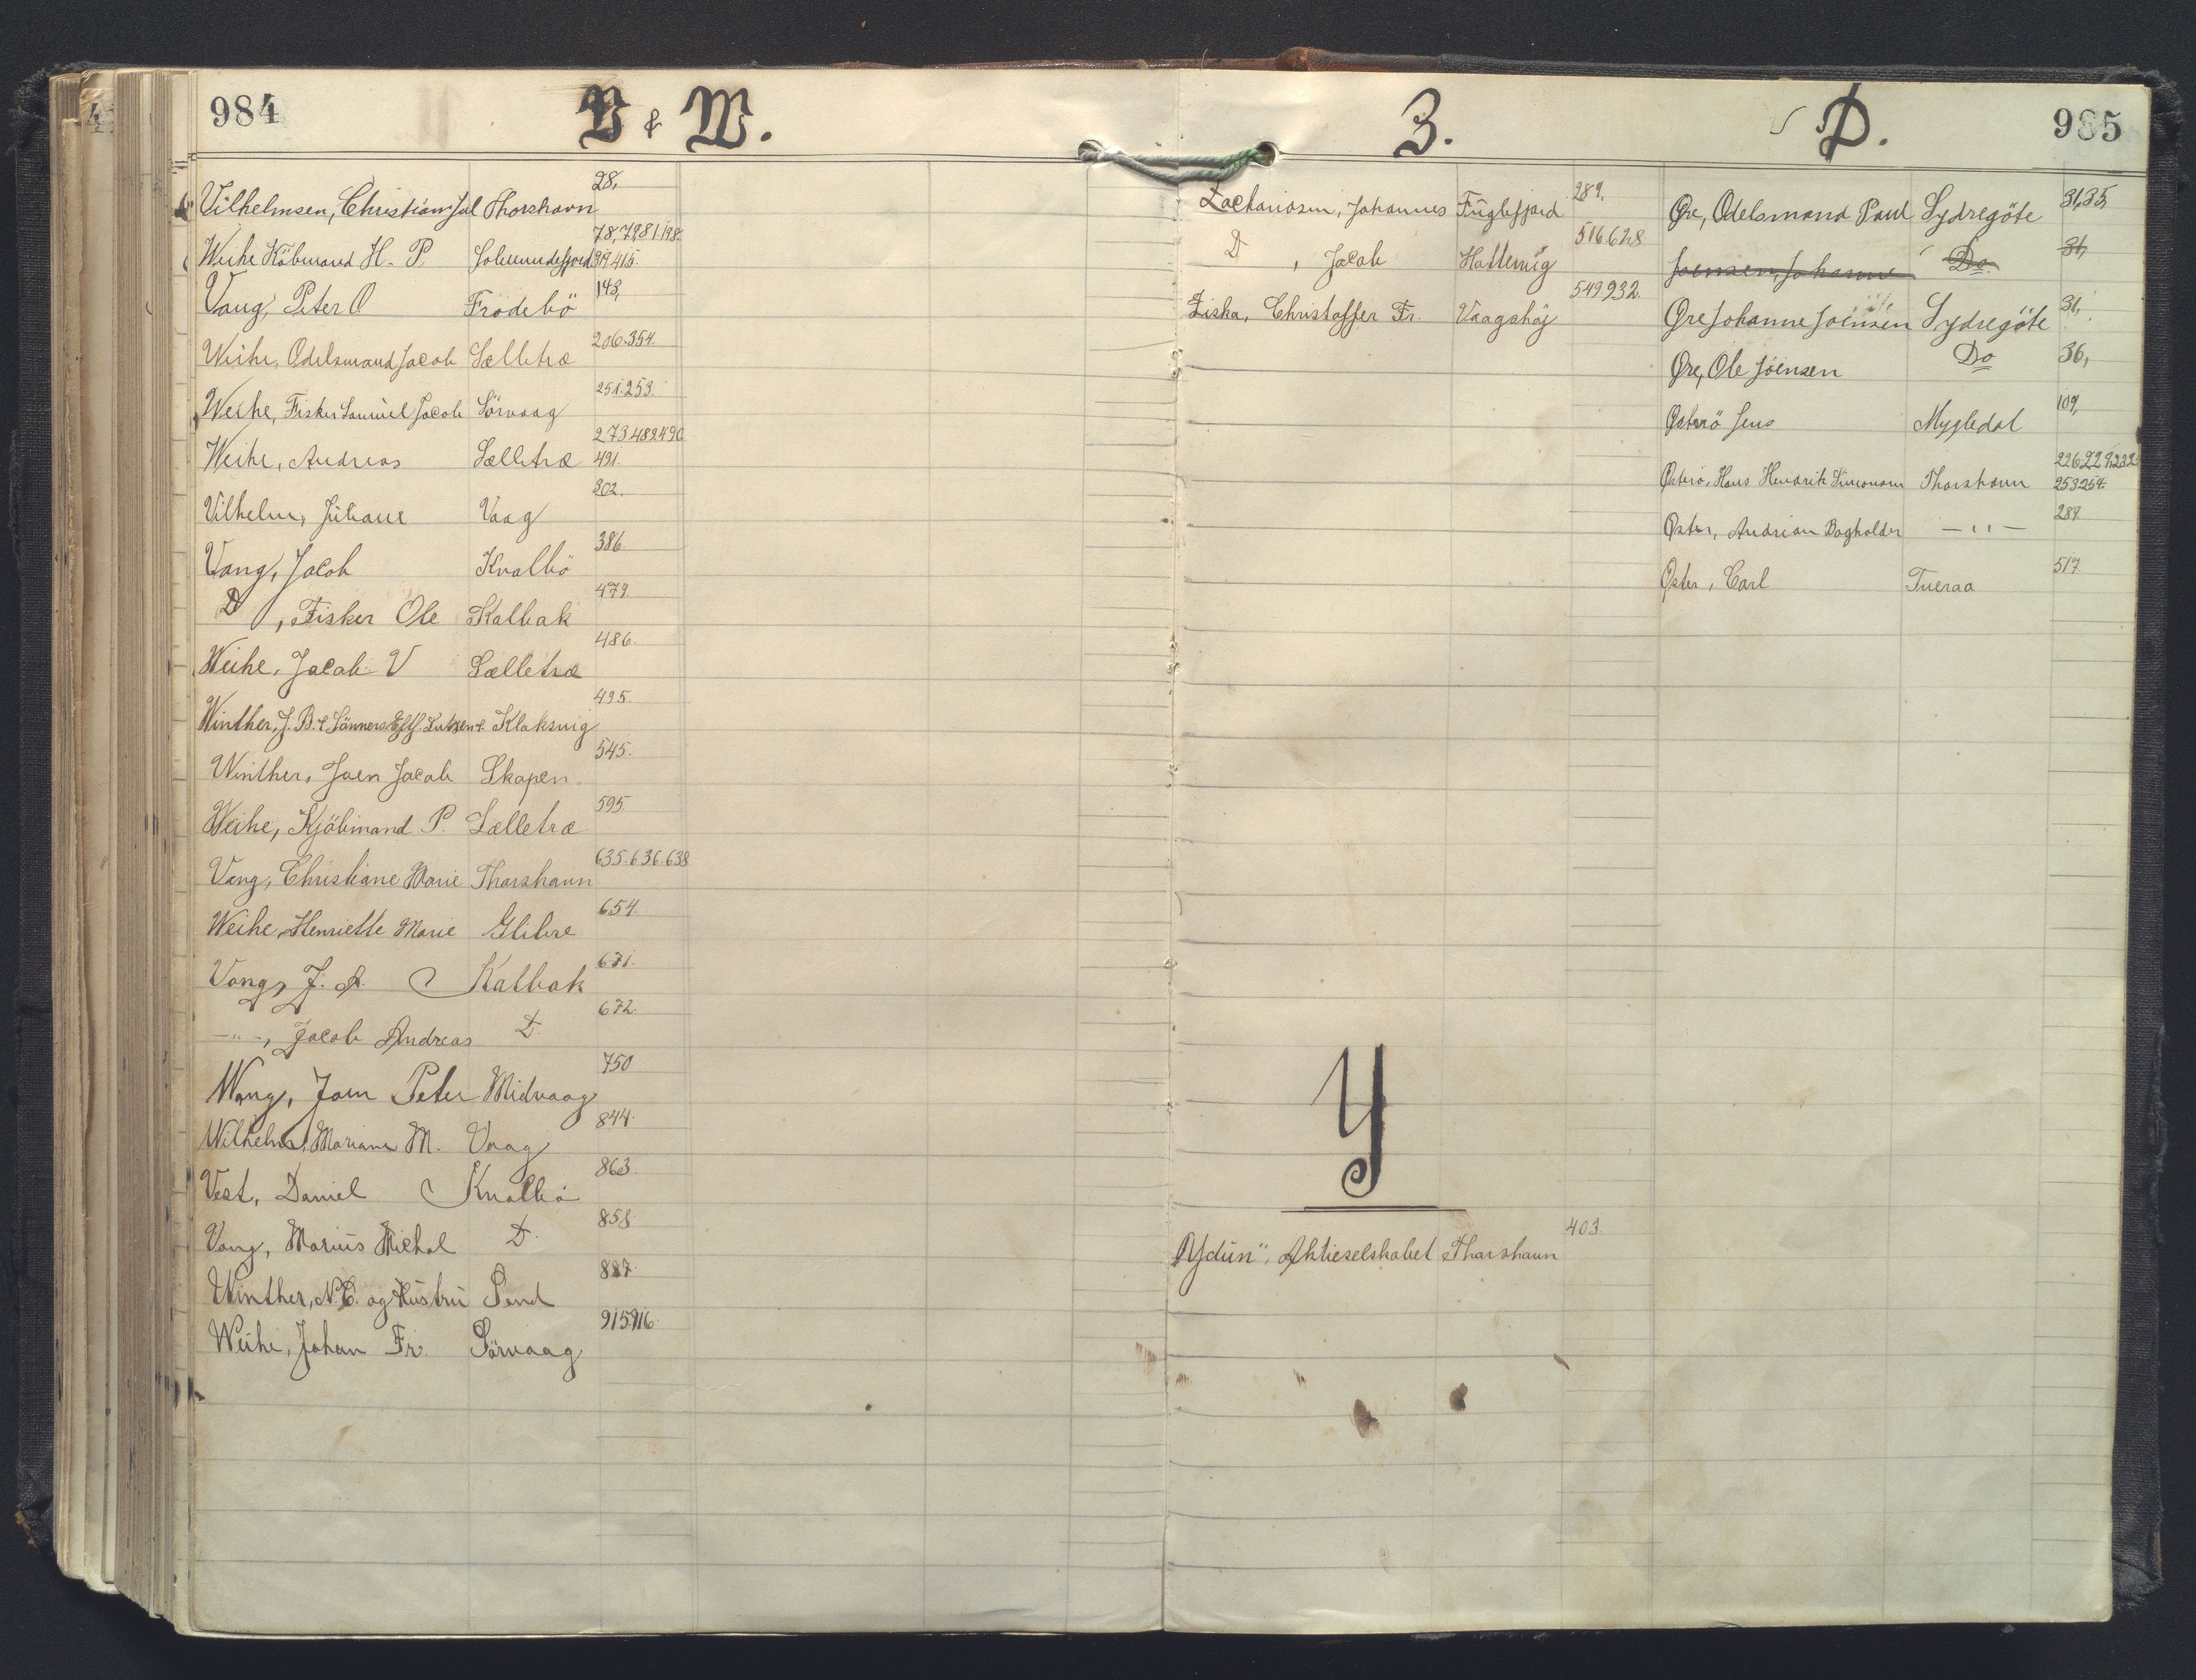 984
V & W.
28,
Vilhelmsen, Christian Jul Thorshavn
78,79,81.198.
Weihe Köbmand H. P. Solmundefjord 319,415.
143,
Vang, Peter O Frodebö
206.354.
Weihe, Odelsmand Jacob Sælletræ
251.253.
Weihe, Fisker Samuel Jacob Sörvaag
273 489 490
Weihe, Andreas Sælletræ 491.
302.
Vilhelm, Juliane Vaag
386
Vang, Jacob Kvalbö
479.
D , Fisker Ole Kalbak
486.
Weihe, Jacob V Sælletræ
495.
Winther, J. B. & Sönners Eftf. Klaksvig
545.
Winther, Joen Jacob Skapen.
595.
Weihe, Kjöbmand P. Sælletræ
635.636.638
Vang, Christiane Marie Thorshavn
654.
Weihe, Henriette Marie Glibre
671.
Vang, J. A. Kalbak
672.
-"-, Jacob Andreas D.
750
Wang, Joen Peter Midvaag
844.
Wilhelm, Mariane M. Vaag
863.
Vest, Daniel Kvalbö
858
Vang, Marius Michal D.
887.
Winther, N. C. og Hustru Sand
915.916.
Weihe, Johan Fr. Sörvaag
Z. Ø. 985
289.
Zachariasen, Johannes Fuglefjord
516.628.
D , Jacob Hattervig
549.932.
Ziska, Christoffer Fr. Vaagshöj
Y
403
"Ydun", Aktieselskabet Thorshavn
Øre, Odelsmand Paul Sydregöte 31,35,
Joensen, Johanne Do 31,
Øre Johanne Joensen Sydregöte 31,
Øre, Ole Joensen Do 36,
Østerö Jens Mygledal 109,
226.229.232
Österö, Hans Hendrik Simonsen Thorshavn 253 254.
Øster, Andrian Bogholder -"- 289
Øster, Carl Tveraa 517